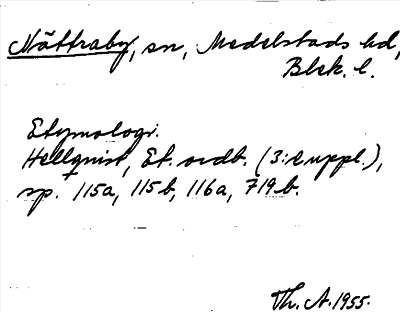 Nättraby, sn, Medelstads hd,
Blek. l.
Etymologi.
Hellquist, Et. ordb. (3:e uppl.),
sp. 115a, 115b, 116a, 719b.
Th. A. 1955.